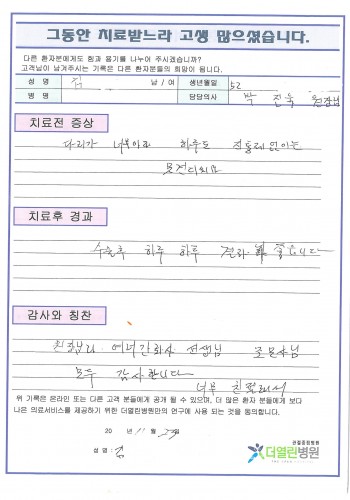 그동안 치료받느라 고생 많으셨습니다.
다른 환자분에게도 힘과 용기를 나누어 주시겠습니까?
고객님이 남겨주시는 기록은 다른 환자분들의 희망이 됩니다.
성 명 김 남 / 여 생년월일 52
병 명 담당의사 박 진욱 원장님
치료전 증상
다리가 너무아파 하루도 진통제 없이는
못견디겠요
치료후 경과
수술후 하루 하루 결과 좋습니다
감사와 칭찬
원장님 간호사 선생님
모두 감사합니다
너무 친절해서
위 기록은 온라인 또는 다른 고객 분들에게 공개 될 수 있으며, 더 많은 환자 분들에게 보다
나은 의료서비스를 제공하기 위한 더열린병원만의 연구에 사용 되는 것을 동의합니다.
20 년 11 월 29일
성 명 : 김
관절중점병원
더열린병원